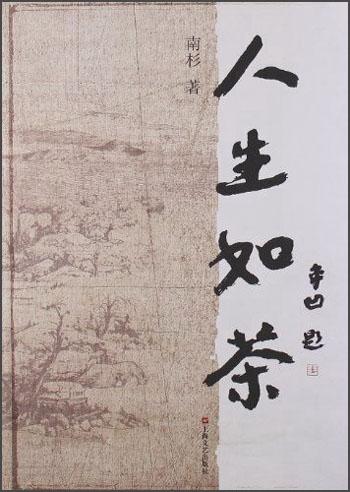 人生如茶
平凹 题
南杉 著
上海文艺出版社